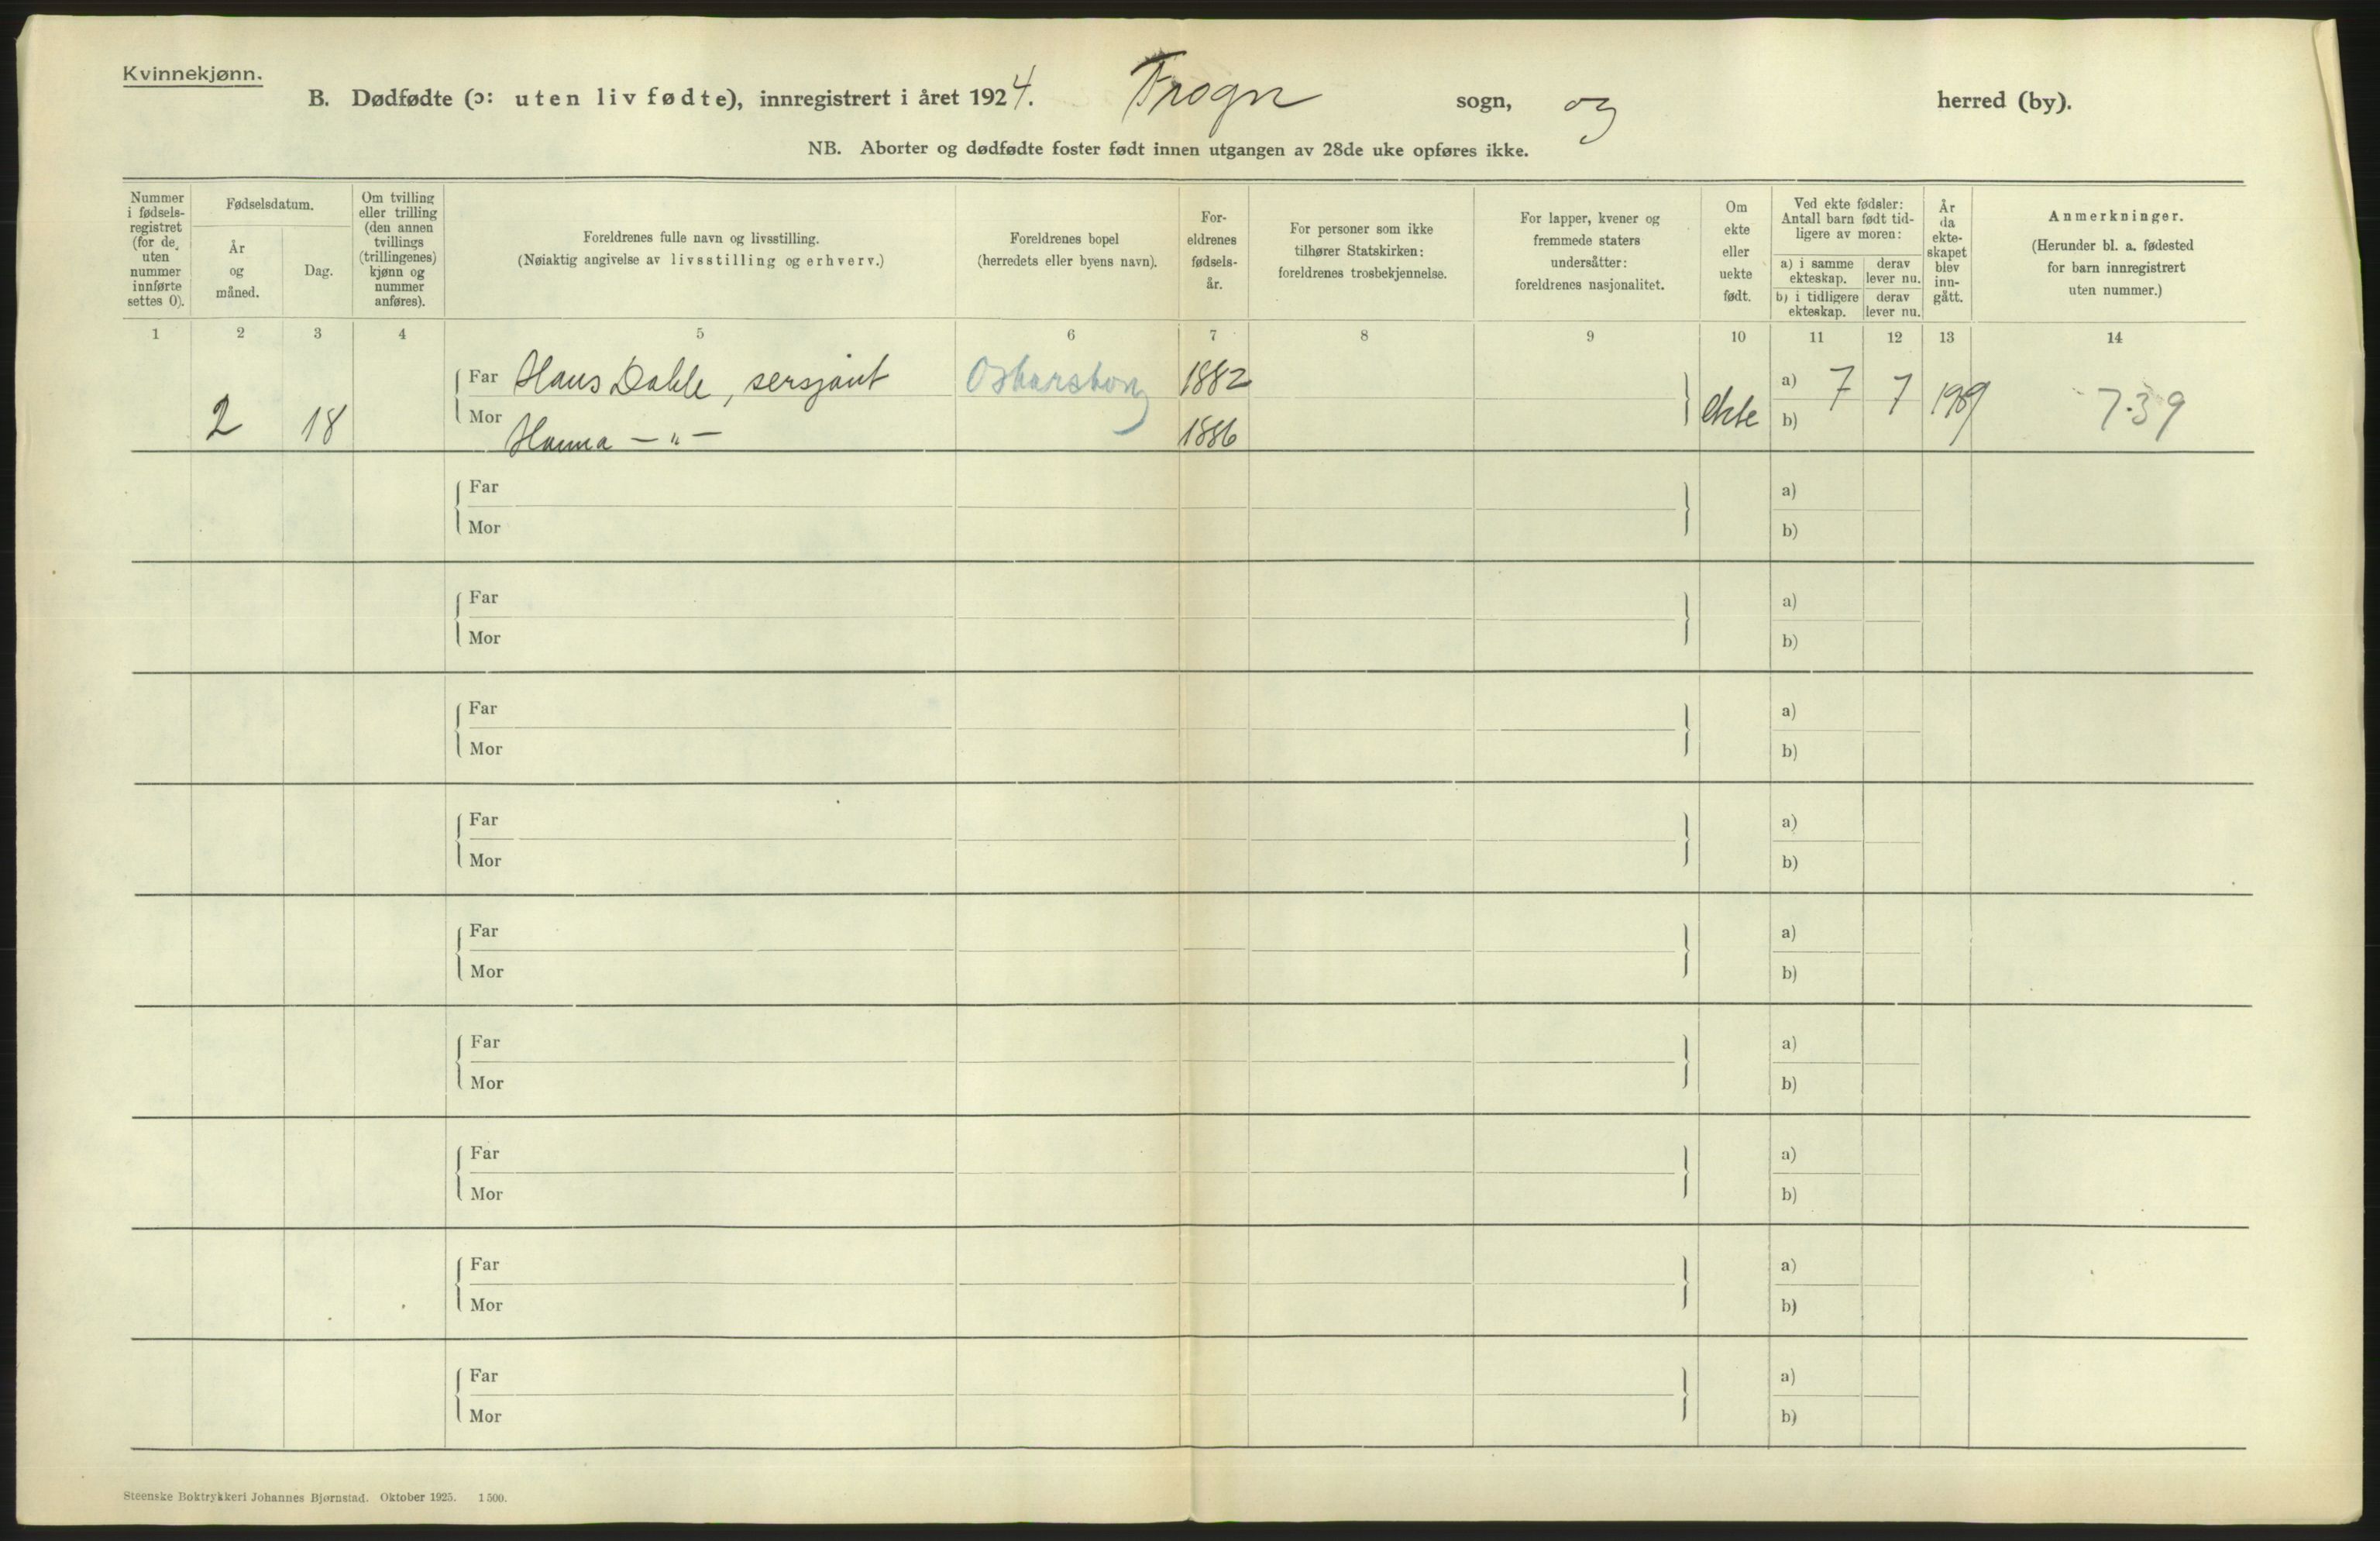 Kvinnekjønn.
B. Dødfødte (ɔ: uten liv fødte), innregistrert i året 1924. Frogn sogn, og herred (by).
NB. Aborter og dødfødte foster født innen utgangen av 28de uke opføres ikke.
Nummer i fødsels- registret (for de uten nummer innførte settes 0).
Fødselsdatum.
År og måned.
Dag.
Om tvilling eller trilling (den annen tvillings (trillingenes) kjønn og nummer anføres).
Foreldrenes fulle navn og livsstilling.
(Nøiaktig angivelse av livsstilling og erhverv.)
Foreldrenes bopel
(herredets eller byens navn).
For- eldrenes fødsels- år.
For personer som ikke tilhører Statskirken: foreldrenes trosbekjennelse.
For lapper, kvener og fremmede staters undersåtter: foreldrenes nasjonalitet.
Om ekte eller uekte født.
Ved ekte fødsler: Antall barn født tid- ligere av moren:
a) i samme ekteskap.
derav lever nu.
b) i tidligere ekteskap.
derav lever nu.
År da ekte- skapet blev inn- gått.
Anmerkninger.
(Herunder bl. a. fødested for barn innregistrert uten nummer.)
1 2 3 4 5 6 7 8 9 10 11 12 13 14
Far Hans Dahle, sersjant Oskarsborg 1882
2 18 ekte a) 7 7 1909 7.39
Mor Hanna — " — 1886 b)
Far a)
Mor b)
Far a)
Mor b)
Far a)
Mor b)
Far a)
Mor b)
Far a)
Mor b)
Far a)
Mor b)
Far a)
Mor b)
Far a)
Mor b)
Far a)
Mor b)
Steenske Boktrykkeri Johannes Bjørnstad. Oktober 1925. 1 500.